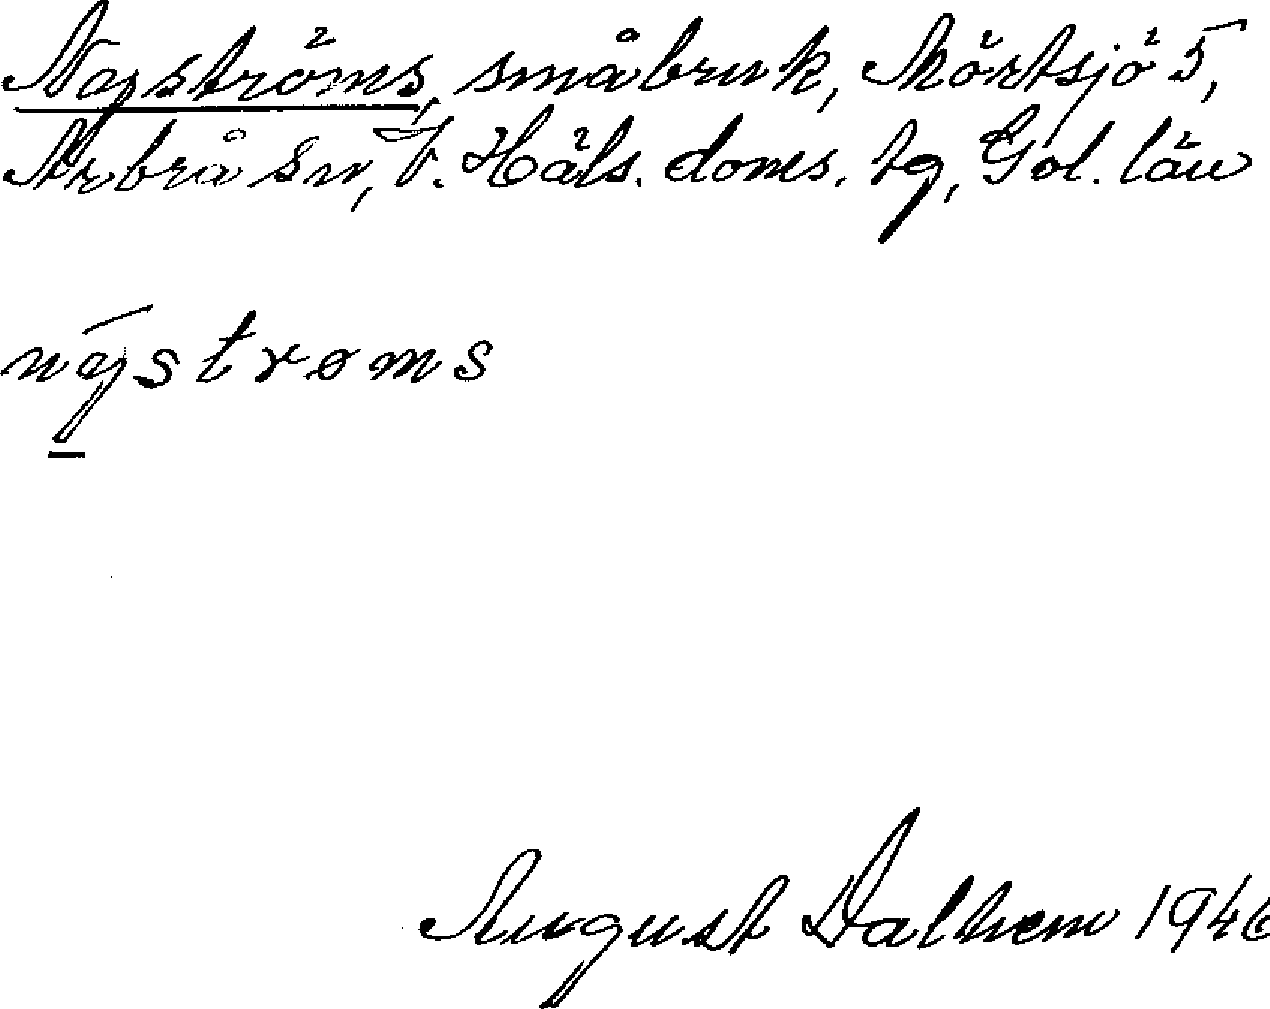 Nyströms, småbruk, Mörtsjö 5,
Arbrå sn, V. Häls. doms. tg, Gvl. län
nȳstroms
August Dalhem 1946